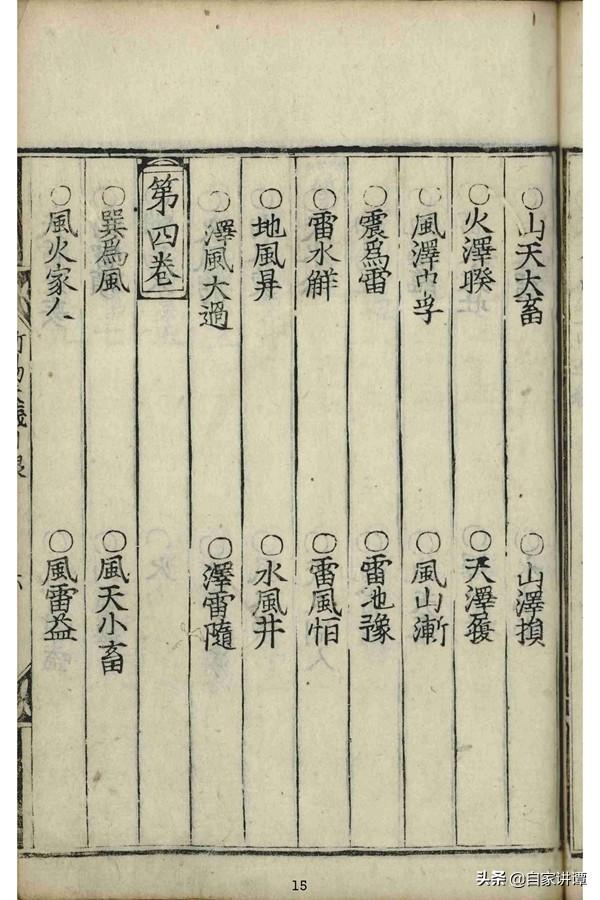 ○山天大畜 ○山澤損
○火澤睽 ○天澤履
○風澤中孚 ○風山漸
○震爲雷 ○雷地豫
○雷水解 ○雷風恒
○地風昇 ○水風井
○澤風大過 ○澤雷隨
第四卷
○巽爲風 ○風天小畜
○風火家人 ○風雷益
15
头条 @自家讲谭